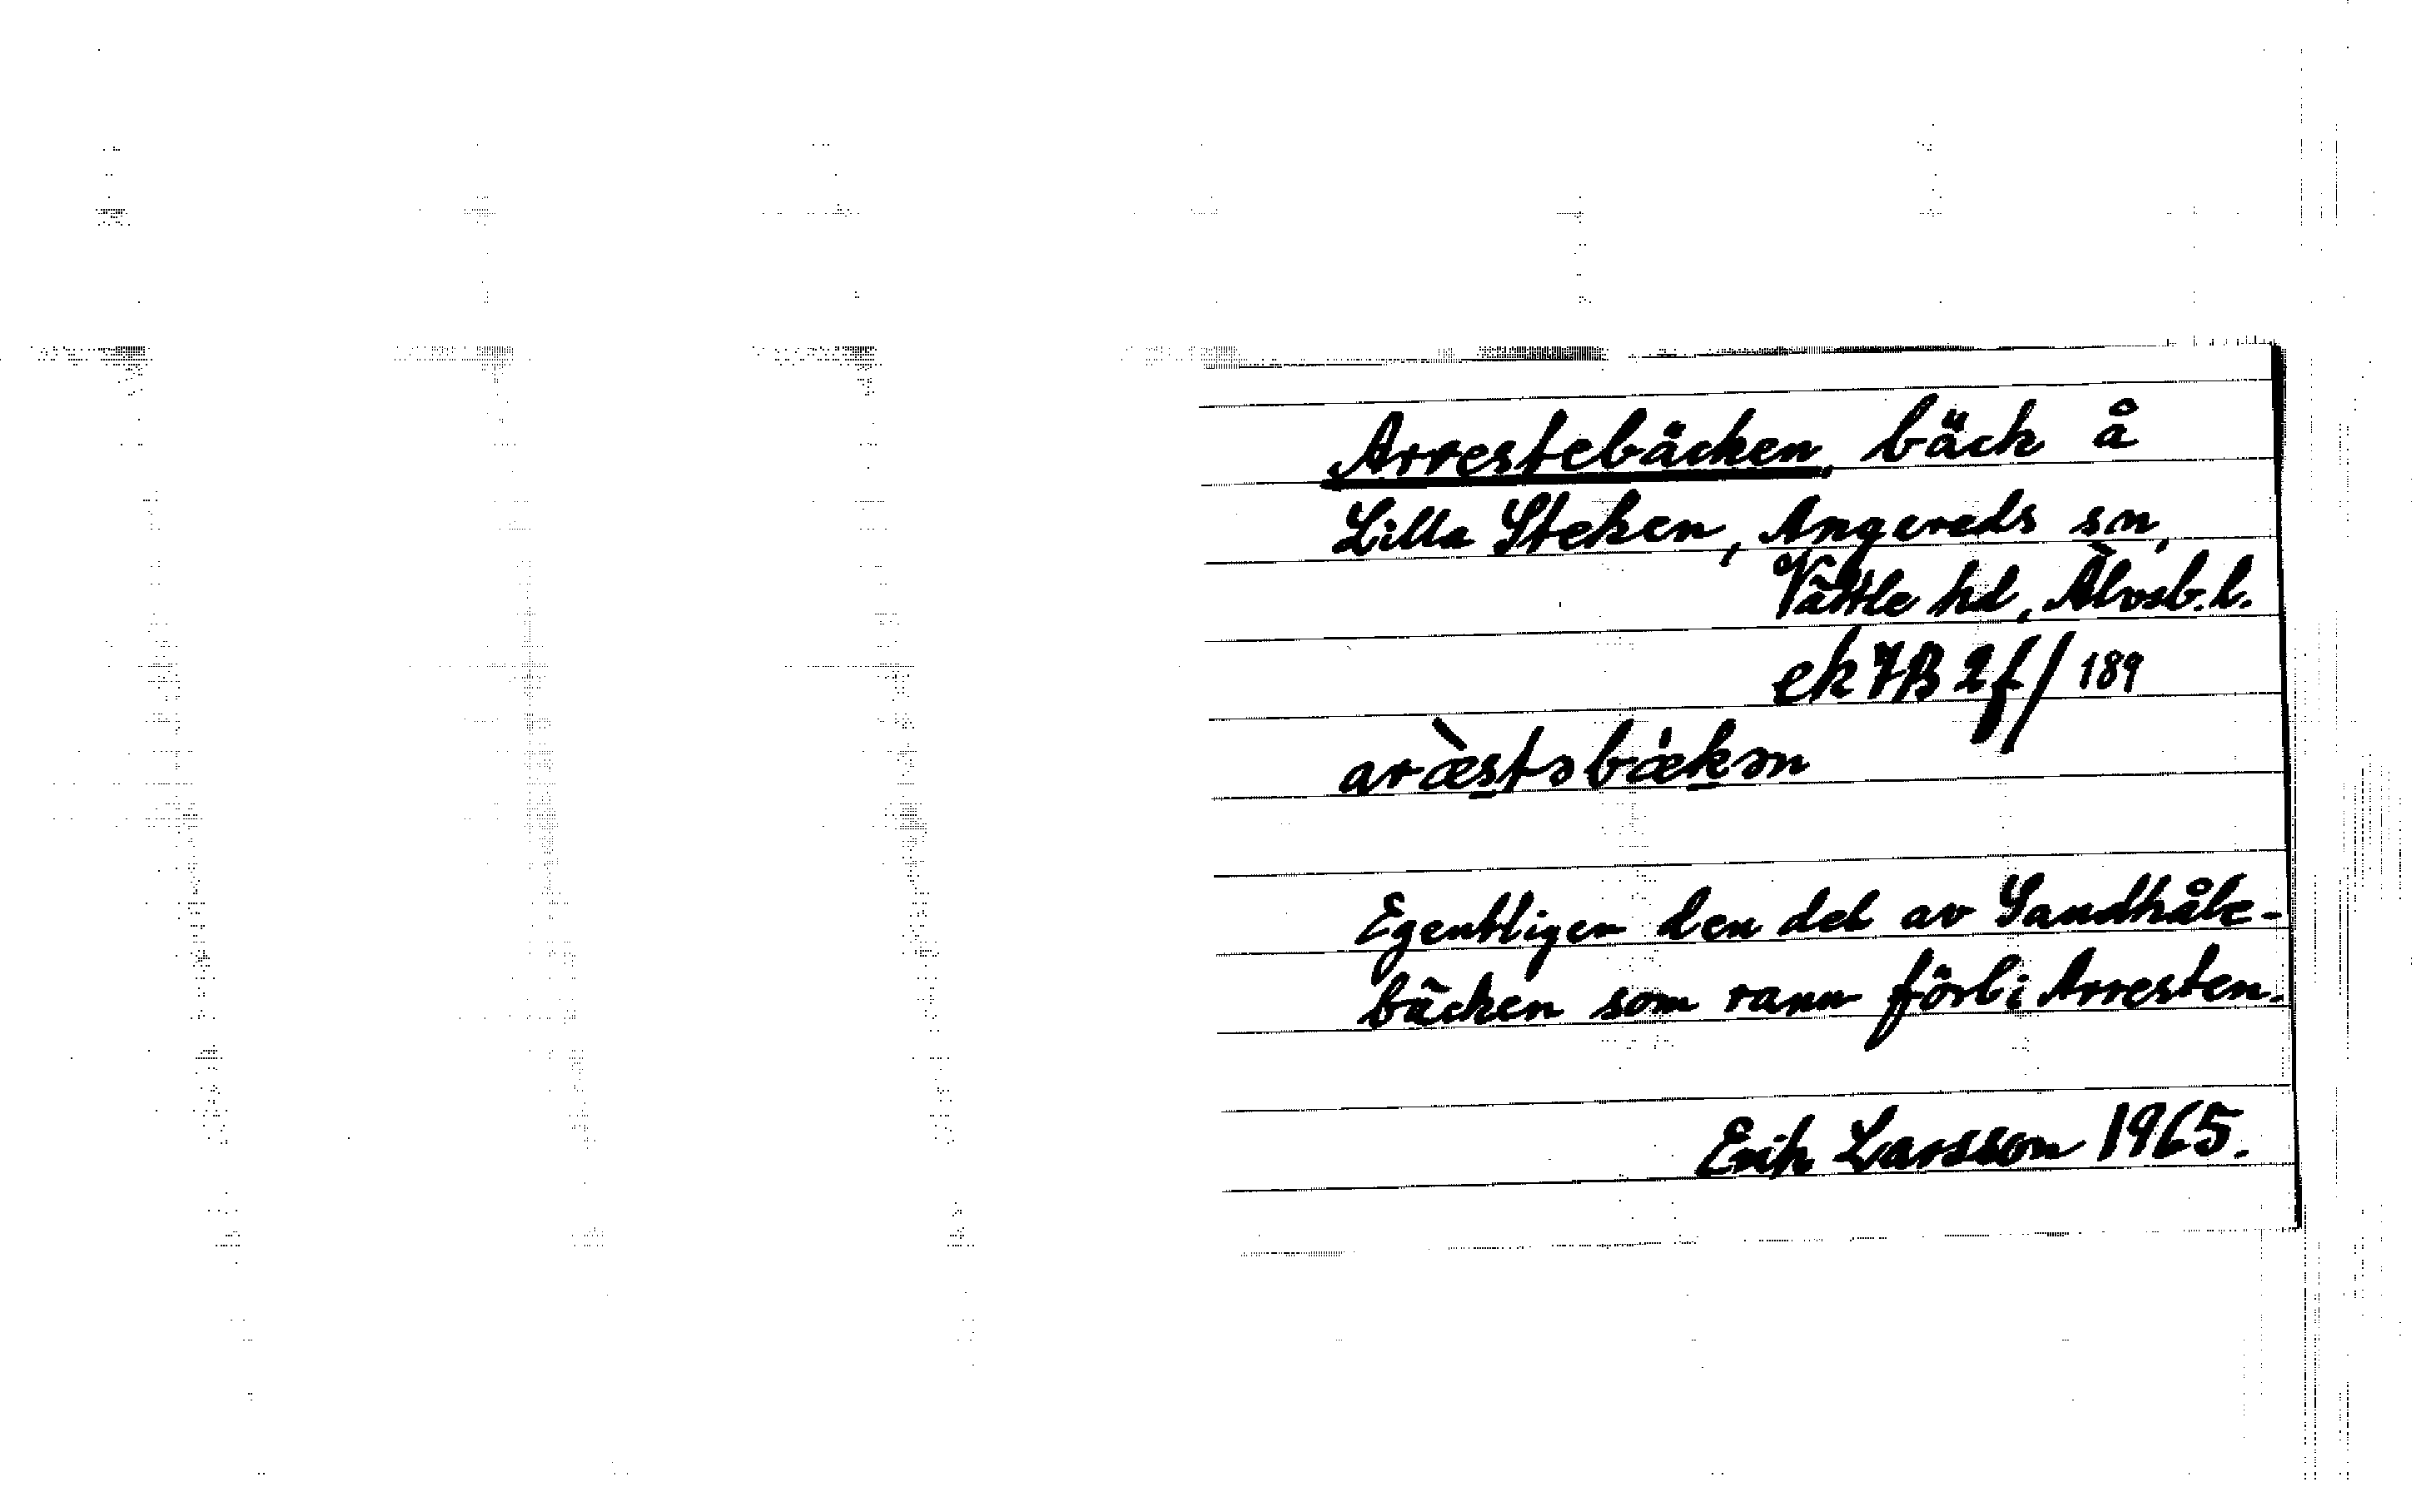 Arrestebäcken, bäck å
Lilla Steken, Angereds sn,
Vättle hd, Älvsb. l.
ek 7B 2f/189
aræ̀stəbækən
Egentligen den del av Sandhåle-
bäcken som rann förbi Arresten.
Erik Larsson 1965.